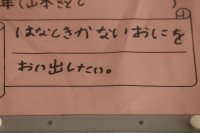 年(山本さとし
はなしきかないおにを
おい出したい。